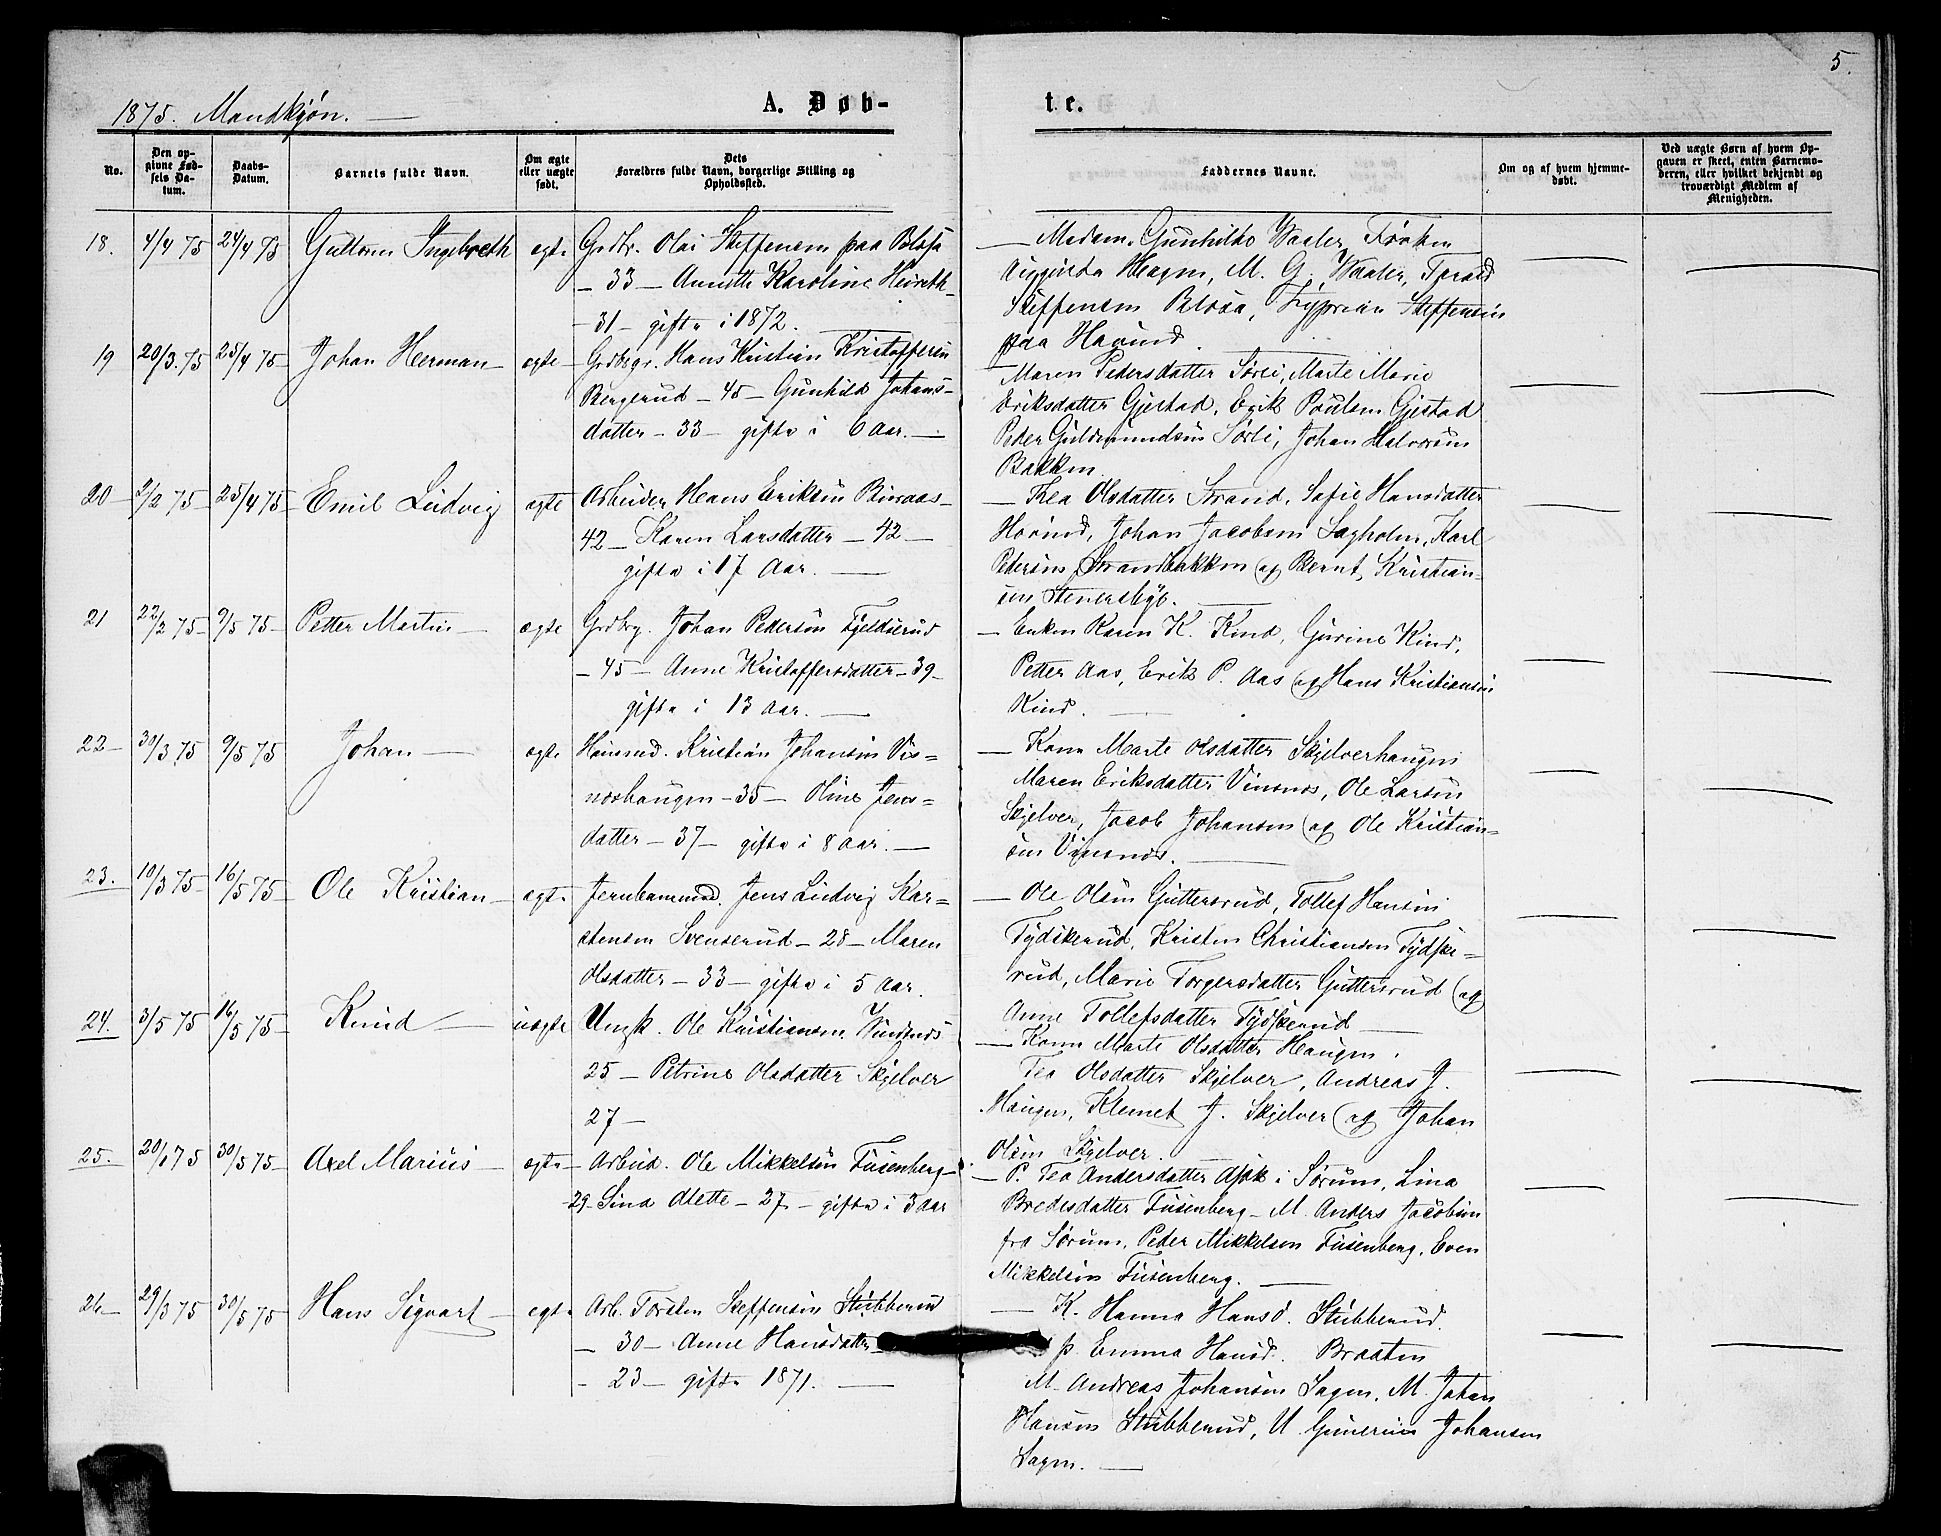 5.
1875. Mandkjøn. —
A. Døb-
te.
No.
Den op-
givne Fød-
sels Da-
tum.
Daabs-
Datum.
Barnets fulde Navn.
Om ægte
eller uægte
født.
Dets
Forældres fulde Navn, borgerlige Stilling og
Opholdssted.
Faddernes Navne.
Om og af hvem hjemme-
døbt.
Ved uægte Børn af hvem Op-
gaven er skeet, enten Barnemo-
deren, eller hvilket bekjendt og
troværdigt Medlem af
Menigheden.
18. 4/4 75 24/4 75 Guttorm Ingebreth ægte Grdbr. Olai Steffensen paa
— 33 — Annette Karoline
— 31 — gifte i 1872.
— Madam Gunhilde Waaler, Frøken
Hagen, M. G. Waaler,
Steffensen Steffensen
paa Havind.
19 20/3 75 25/4 75 Johan Herman — ægte — Grdbgr. Hans Kristian Kristoffersen
Bergerud — 45 — Gunhild Johans-
datter — 33 — gifte i 6 Aar. —
Maren Pedersdatter Sørli, Marte Marie
Eriksdatter Gjestad, Erik Poulsen Gjestad
Peder Guldmundsen Sørli, Johan Halvorsen
Bakken.
20 — 2/2 75 — 25/4 75 — Emil Ludvig ægte Arbeider Hans Eriksen
42 — Karen Larsdatter — 42 —
gifte i 17 Aar. —
— Thea Olsdatter Strand, Sofie Hansdatter
Hovind, Johan Jacobsen Sagholm, Karl
Pedersen Strandbakken og Bernt Kristian-
sen Stenersbye.
21 22/2 75 — 9/5 75 — Petter Martin — ægte Grdbrg. Johan Pedersen Fjeldserud
— 45 — Anne Kristoffersdatter — 39 —
gifte i 13 Aar. —
— Enken Karen K. Kind, Gurine Kind,
Petter Aas, Erik P. Aas og Hans Kristiansen
Kind. —
22 — 30/3 75 9/5 75 Johan — ægte Huusmd. Kristian Johansen Vis-
noshaugen — 35 — Oline Jens-
datter — 37 — gifte i 8 Aar. —
— Kone Marte Olsdatter Skjelverhaugen
Maren Eriksdatter Vinsnos, Ole Larsen
Skjelver, Jacob Johansen og Ole Kristian-
sen Vinsnos. —
23. 10/3 75 — 16/5 75 — Ole Kristian — ægte Jernbanemd. Jens Ludvig Kar-
stensen Svenserud — 28 — Maren
Olsdatter — 33 — gifte i 5 Aar.
— Ole Olsen Guttersrud, Tollef Hansen
Tydskerud, Kristen Christiansen Tydske-
rud, Marie Torgersdatter Guttersrud og
Anne Tollefsdatter Tydskerud —
24. 3/5 75 16/5 75 — Knud — uægte Ungk. Ole Kristiansen Vindsnos
25 — Petrine Olsdatter Skjelver
27 —
— Kone Marte Olsdatter Haugen,
Tea Olsdatter Skjelver, Andreas J.
Haugen, Klemet J. Skjelver og Johan
Olsen Skjelver.
25. 20/1 75 30/5 75 — Axel Marius — ægte — Arbeid. Ole Mikkelsen Fusenberg —
29 — Sina Alette — 27 — gifte i 3 Aar
— P. Tea Andersdatter Asak i Sørum, Lina
Bredesdatter Fusenberg — M. Anders Jacobsen
fra Sørum, Peder Mikkelsen Fusenberg, Even
Mikkelsen Fusenberg. —
26 — 29/3 75 30/5 75 — Hans Sigvart — ægte Arb. Torsten Steffensen Stubberud
— 30 — Anne Hansdatter —
— 23 — gifte 1871. —
— K. Hanna Hansd. Stubberud.
P. Emma Hansd. Braaten
M. Andreas Johansen Sagen, M. Johan
Hansen Stubberud, U. Gunerius Johansen
Sagen. —